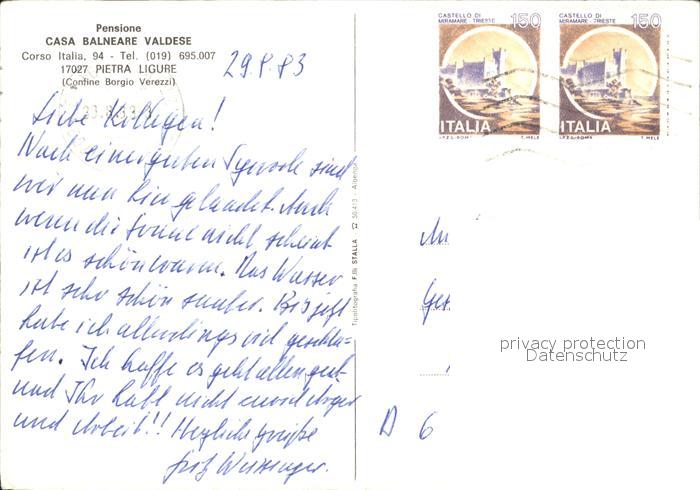 Pensione
CASA BALNEARE VALDESE
Corso Italia, 94 - Tel. (019) 695.007
17027 PIETRA LIGURE
(Confine Borgio Verezzi)
29.8.83
Liebe Kollegen!
Nach einer guten sind
wir nun hier gelandet. Auch
wenn die Sonne nicht scheint
ist es schön warm. Das Wasser
ist sehr schön sauber. Bis jetzt
habe ich allerdings viel geschla-
fen. Ich hoffe es geht allen gut
und Ihr habt nicht Ärger
und Arbeit!! Herzliche Grüße
Tipolitografia F.lli STALLA ☎ 50.413 - Albenga
CASTELLO DI
MIRAMARE - TRIESTE
150
ITALIA
I.P.Z.S. - ROMA T. MELE
CASTELLO DI
MIRAMARE - TRIESTE
150
ITALIA
I.P.Z.S. - ROMA T. MELE
An
privacy protection
Datenschutz
D 6